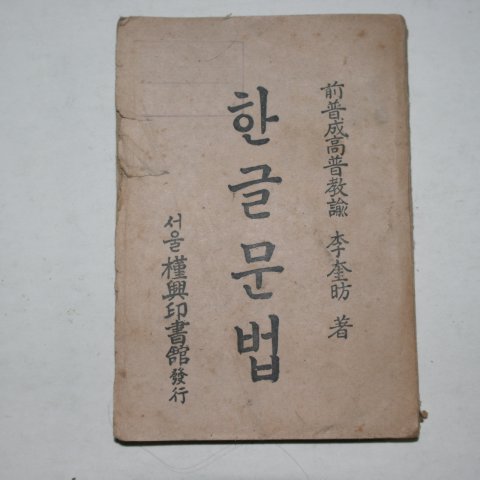 前普成高普敎諭 李奎昉 著
한글문법
서울 槿興印書館 發行